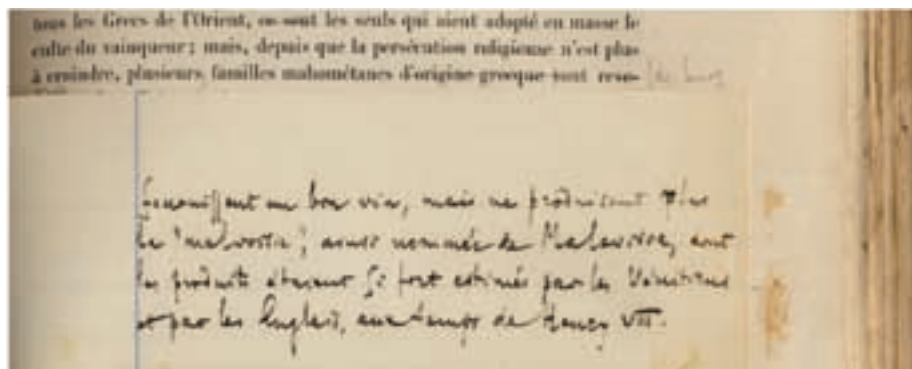 tous les Grecs de l'Orient, ce sont les seuls qui aient adopté en masse le
culte du vainqueur; mais, depuis que la persécution religieuse n'est plus
à craindre, plusieurs familles mahométanes d'origine grecque sont reve-
fournissent un bon vin, mais ne produisent plus
le "malvoisie", ainsi nommée de Malavoisie, dont
les produits étaient si fort estimés par les Vénitiens
et par les Anglais, aux temps de Henry VII.